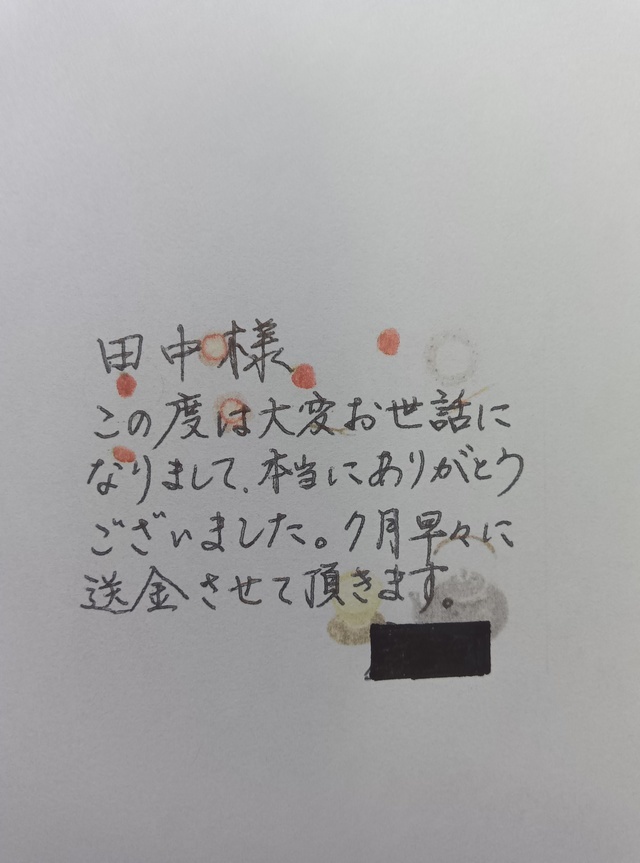 田中様
この度は大変お世話に
なりまして、本当にありがとう
ございました。7月早々に
送金させて頂きます。